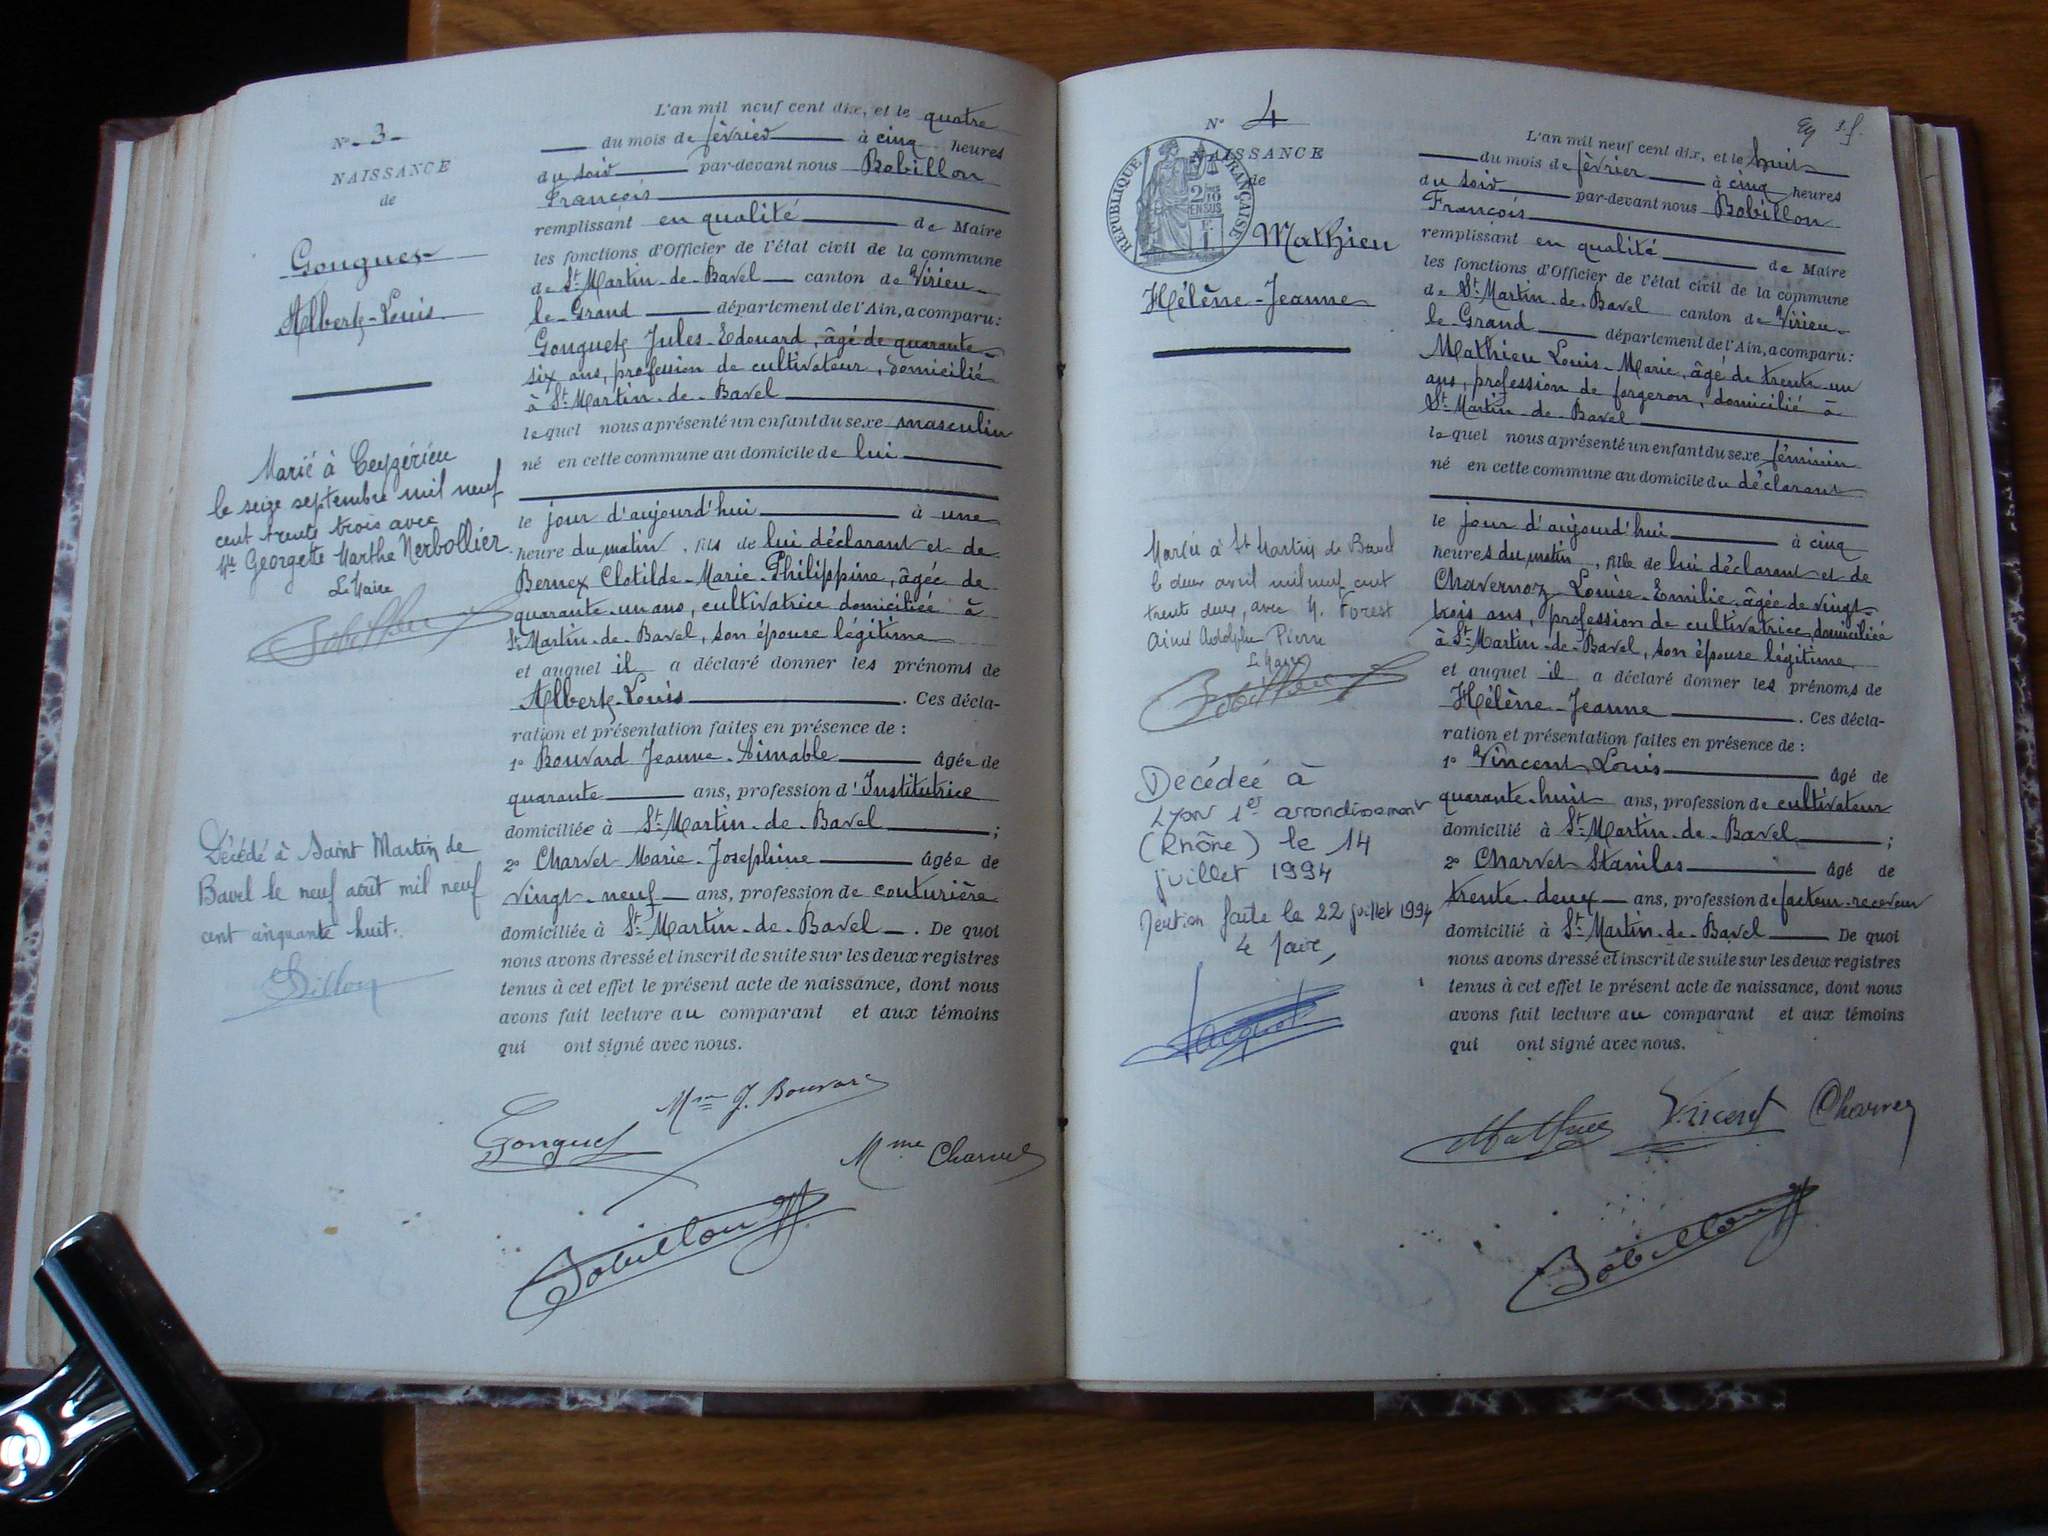 N° 3
NAISSANCE
de
Gonguet
Albert-Louis
Marié à Ceyzérieu
le seize septembre mil neuf
cent trente trois avec
Mlle Georgette Marthe Nerbollier
Le Maire
Décédé à Saint Martin de
Bavel le neuf août mil neuf
cent cinquante huit.
Dillon
L'an mil neuf cent dix, et le quatre
du mois de février à cinq heures
du soir par-devant nous Bobillon
François
remplissant en qualité de Maire
les fonctions d'Officier de l'état civil de la commune
de St Martin-de-Bavel canton de Virieu-
le-Grand département de l'Ain, a comparu :
Gonguet Jules-Edouard, âgé de quarante-
six ans, profession de cultivateur, domicilié
à St Martin-de-Bavel
lequel nous a présenté un enfant du sexe masculin
né en cette commune au domicile de lui
le jour d'aujourd'hui à une
heure du matin, fils de lui déclarant et de
Bernex Clotilde-Marie-Philippine, âgée de
quarante-un ans, cultivatrice domiciliée à
St Martin-de-Bavel, son épouse légitime
et auquel il a déclaré donner les prénoms de
Albert-Louis. Ces décla-
ration et présentation faites en présence de :
1° Bouvard Jeanne-Aimable âgée de
quarante ans, profession d'Institutrice
domiciliée à St Martin-de-Bavel ;
2° Charvet Marie-Josephine âgée de
vingt-neuf ans, profession de couturière
domiciliée à St Martin-de-Bavel. De quoi
nous avons dressé et inscrit de suite sur les deux registres
tenus à cet effet le présent acte de naissance, dont nous
avons fait lecture au comparant et aux témoins
qui ont signé avec nous.
Gonguet Mme J. Bouvard
Mme Charvet
Bobillon
N° 4
NAISSANCE
de
RÉPUBLIQUE FRANÇAISE
Mathieu
Hélène-Jeanne
Mariée à St Martin de Bavel
le deux avril mil neuf cent
trente deux, avec M. Forest
Aimé Adolphe Pierre
Le Maire
Décédée à
Lyon 1er arrondissement
(Rhône) le 14
juillet 1994
Mention faite le 22 juillet 1994
Le Maire,
L'an mil neuf cent dix, et le huit
du mois de février à cinq heures
du soir par-devant nous Bobillon
François
remplissant en qualité de Maire
les fonctions d'Officier de l'état civil de la commune
de St Martin-de-Bavel canton de Virieu-
le-Grand département de l'Ain, a comparu :
Mathieu Louis-Marie, âgé de trente-un
ans, profession de forgeron, domicilié à
St Martin-de-Bavel
lequel nous a présenté un enfant du sexe féminin
né en cette commune au domicile du déclarant
le jour d'aujourd'hui à cinq
heures du matin, fille de lui déclarant et de
Chavernoz Louise-Emilie, âgée de vingt-
trois ans, profession de cultivatrice, domiciliée
à St Martin-de-Bavel, son épouse légitime
et auquel il a déclaré donner les prénoms de
Hélène-Jeanne. Ces décla-
ration et présentation faites en présence de :
1° Vincent Louis âgé de
quarante-huit ans, profession de cultivateur
domicilié à St Martin-de-Bavel ;
2° Charvet Stanilas âgé de
trente-deux ans, profession de facteur-receveur
domicilié à St Martin-de-Bavel De quoi
nous avons dressé et inscrit de suite sur les deux registres
tenus à cet effet le présent acte de naissance, dont nous
avons fait lecture au comparant et aux témoins
qui ont signé avec nous.
Mathieu Vincent Charvet
Bobillon